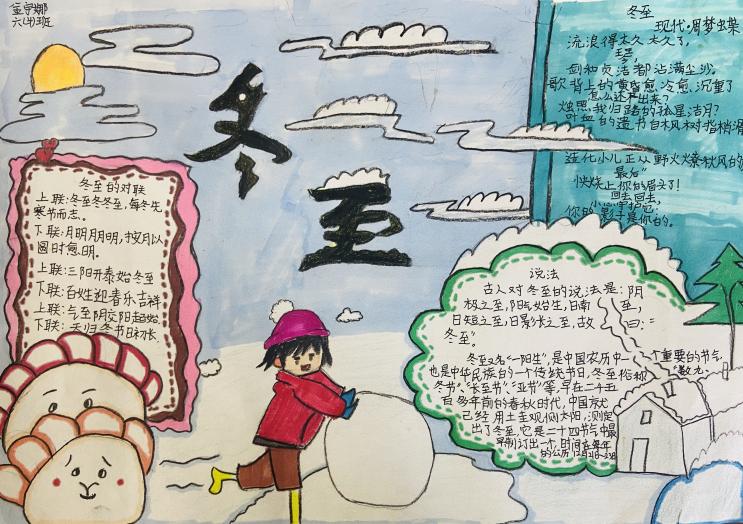 金宇娜
六(4)班
冬至
冬至的对联
上联:冬至冬冬至,每冬年
寒节而志。
下联:月明月月明,按月以
圆时愈明。
上联:三阳开泰始冬至
下联:百姓迎喜乐吉祥
上联:气至阴定阳起始
下联:天归冬节日初长
冬至
现代·周梦蝶
流浪得太久太久了,
琴,
剑和贞洁都沾满尘沙。
歌背上的黄昏愈冷愈沉重了
怎么还不出来?
烛照我归路的孤星洁月?
叶血的遗书自枫树指梢滑
莲化小儿正从野火燎秋风的
最后”
快烧上你的眉头了!
回去回去,
小心守护它,
你的影子是你的。
说法
古人对冬至的说法是:阴
极之至,阳气始生,日南至,
日短之至,日影长之至,故曰:“
冬至”。
冬至又名“一阳生”,是中国农历中一个重要的节气,
也是中华民族的一个传统节日,冬至俗称“数九、
冬节”、“长至节”、“亚节”等,早在二千五
百多年前的春秋时代,中国就
已经用土圭观测太阳,测定
出了冬至,它是二十四节气中最
早制订出一个,时间在每年
的公历12月21日-23日